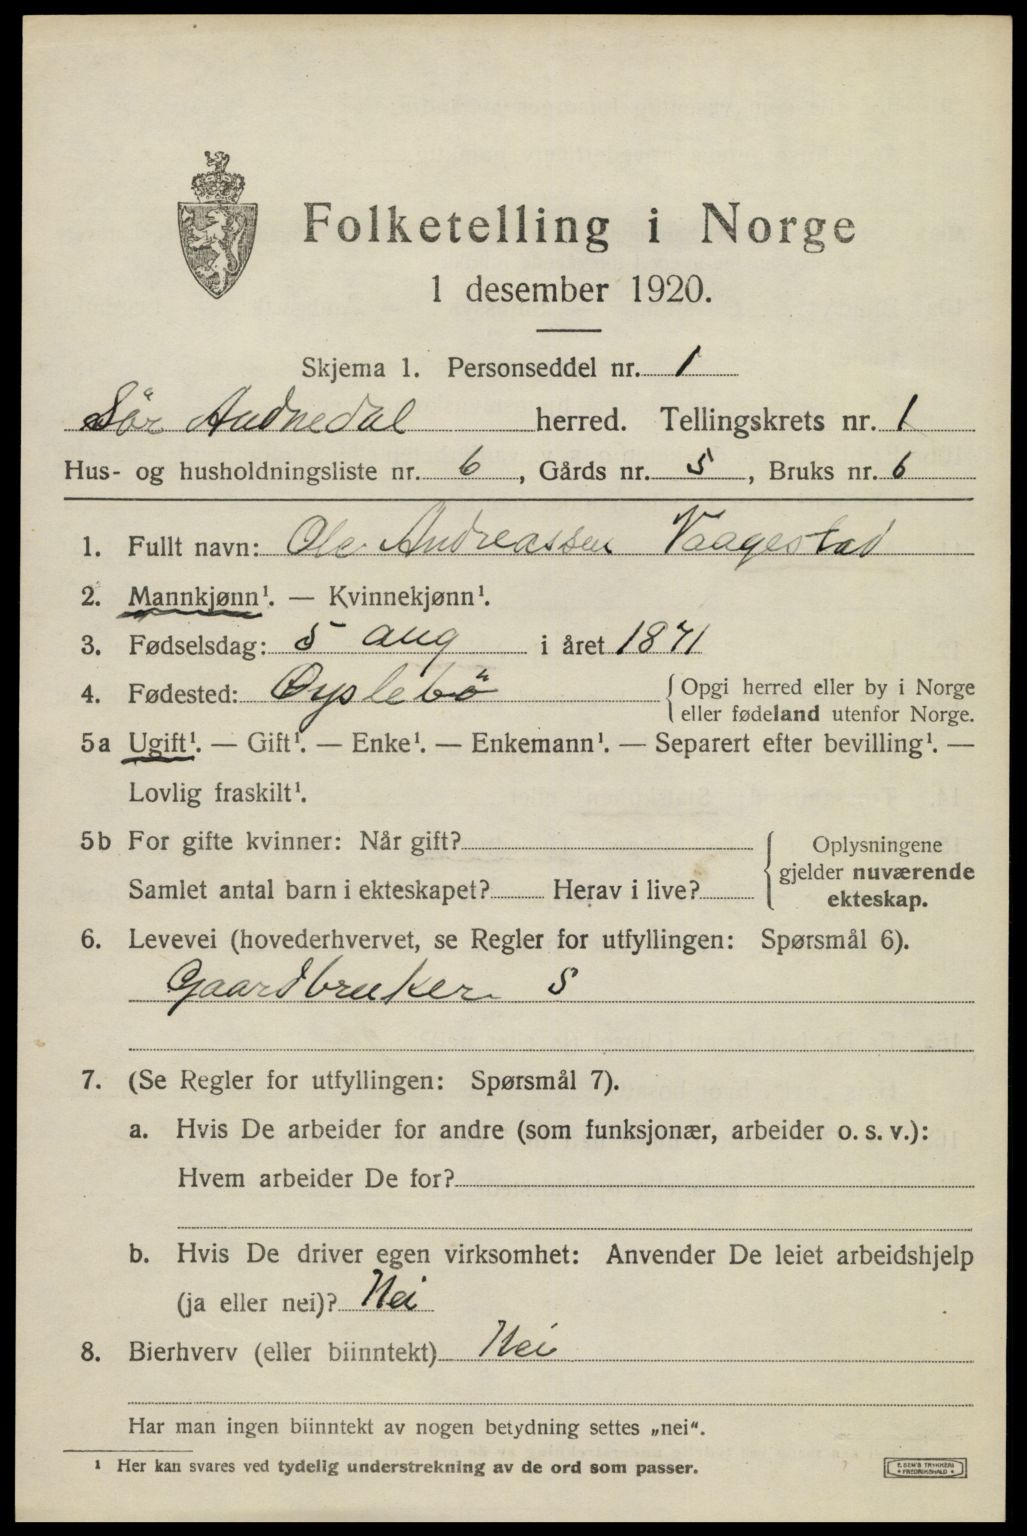 Folketelling i Norge
1 desember 1920.
Skjema 1. Personseddel nr. 1
Sör Audnedal herred. Tellingskrets nr. 1
Hus- og husholdningsliste nr. 6, Gårds nr. 5, Bruks nr. 6
1. Fullt navn: Ole Andreassen Vaagestad
2. Mannkjønn¹. — Kvinnekjønn¹.
3. Fødselsdag: 5 aug i året 1871
4. Fødested: Øyslebö {Opgi herred eller by i Norge
eller fødeland utenfor Norge.
5a Ugift¹. — Gift¹. — Enke¹. — Enkemann¹. — Separert efter bevilling¹. —
Lovlig fraskilt¹.
5b For gifte kvinner: Når gift?
Samlet antal barn i ekteskapet? Herav i live?
Oplysningene
gjelder nuværende
ekteskap.
6. Levevei (hovederhvervet, se Regler for utfyllingen: Spørsmål 6).
Gaardbruker S
7. (Se Regler for utfyllingen: Spørsmål 7).
a. Hvis De arbeider for andre (som funksjonær, arbeider o. s. v.):
Hvem arbeider De for?
b. Hvis De driver egen virksomhet: Anvender De leiet arbeidshjelp
(ja eller nei)? Nei
8. Bierhverv (eller biinntekt) Nei
Har man ingen biinntekt av nogen betydning settes „nei“.
¹ Her kan svares ved tydelig understrekning av de ord som passer.
E. SEM'S TRYKKERI
• FREDRIKSHALD •